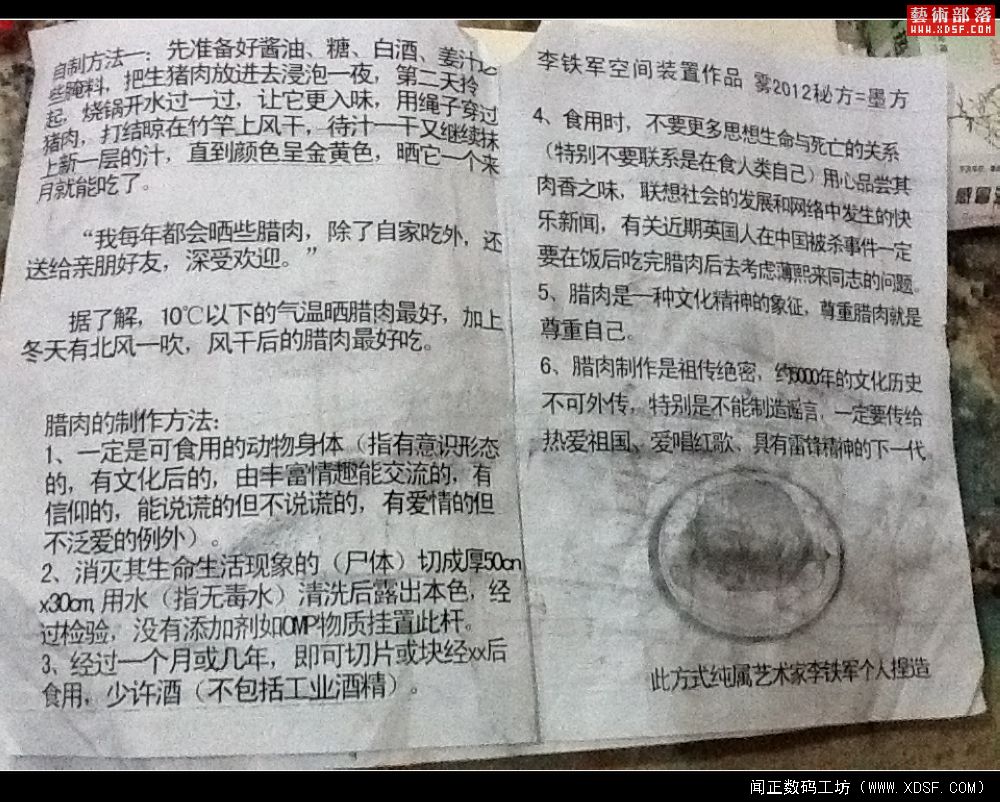 藝術部落
www.XDSF.com
自制方法一：先准备好酱油、糖、白酒、姜汁这
些腌料，把生猪肉放进去浸泡一夜，第二天拎
起，烧锅开水过一过，让它更入味，用绳子穿过
猪肉，打结晾在竹竿上风干，待汁一干又继续抹
上新一层的汁，直到颜色呈金黄色，晒它一个来
月就能吃了。
“我每年都会晒些腊肉，除了自家吃外，还
送给亲朋好友，深受欢迎。”
据了解，10℃以下的气温晒腊肉最好，加上
冬天有北风一吹，风干后的腊肉最好吃。
腊肉的制作方法：
1、一定是可食用的动物身体（指有意识形态
的，有文化后的，由丰富情趣能交流的，有
信仰的，能说谎的但不说谎的，有爱情的但
不泛爱的例外）。
2、消灭其生命生活现象的（尸体）切成厚50cm
x30cm,用水（指无毒水）清洗后露出本色，经
过检验，没有添加剂如OMP物质挂置此杆。
3、经过一个月或几年，即可切片或块经xx后
食用，少许酒（不包括工业酒精）。
李铁军空间装置作品 雾2012秘方=墨方
4、食用时，不要更多思想生命与死亡的关系
（特别不要联系是在食人类自己）用心品尝其
肉香之味，联想社会的发展和网络中发生的快
乐新闻，有关近期英国人在中国被杀事件一定
要在饭后吃完腊肉后去考虑薄熙来同志的问题。
5、腊肉是一种文化精神的象征，尊重腊肉就是
尊重自己。
6、腊肉制作是祖传绝密，约6000年的文化历史
不可外传，特别是不能制造谣言，一定要传给
热爱祖国、爱唱红歌、具有雷锋精神的下一代
此方式纯属艺术家李铁军个人捏造
闻正数码工坊（WWW.XDSF.COM）